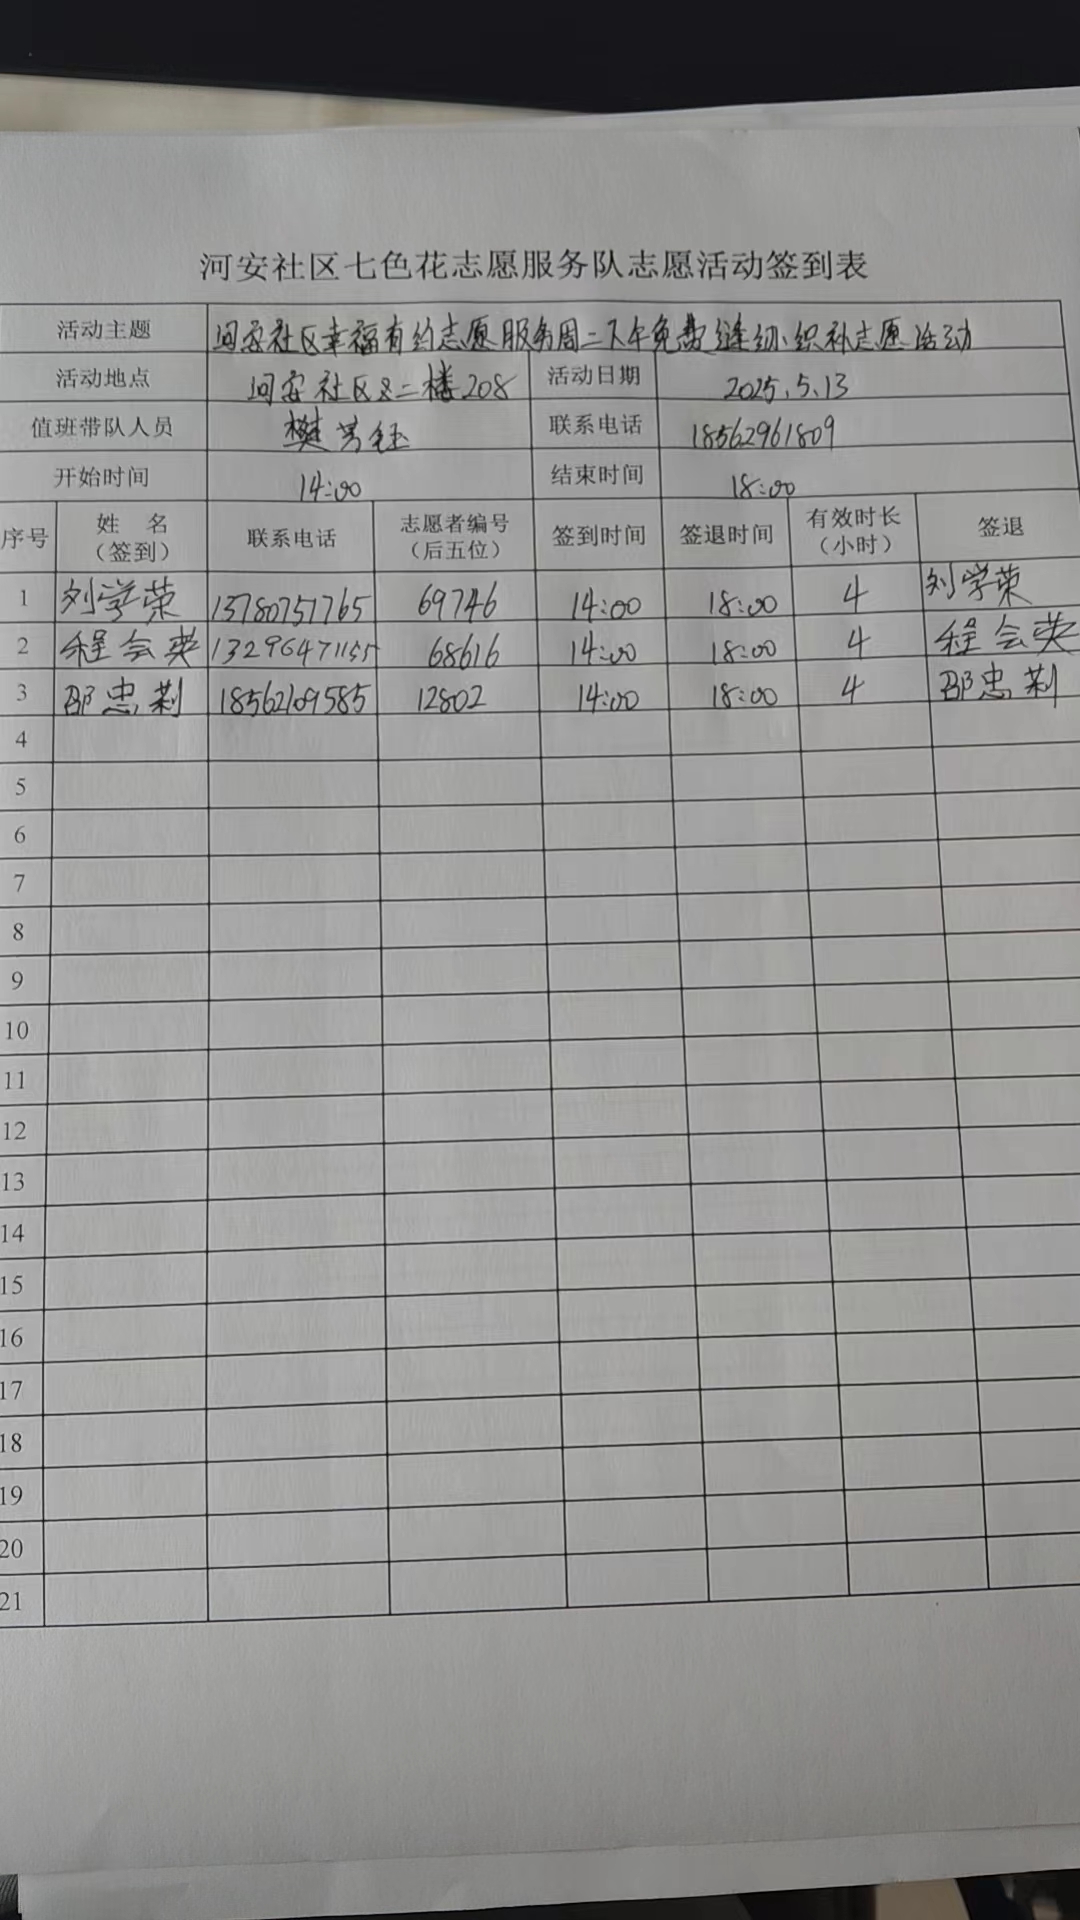 河安社区七色花志愿服务队志愿活动签到表
活动主题 河安社区幸福有约志愿服务周二下午免费缝纫、织补志愿活动
活动地点 河安社区 二楼208 活动日期 2025.5.13
值班带队人员 樊芳钰 联系电话 18562961809
开始时间 14:00 结束时间 18:00
序号 姓 名 (签到) 联系电话 志愿者编号 (后五位) 签到时间 签退时间 有效时长 (小时) 签退
1 刘学荣 13780751765 69746 14:00 18:00 4 刘学荣
2 程会英 13296471155 68616 14:00 18:00 4 程会英
3 邵忠莉 18562109585 12802 14:00 18:00 4 邵忠莉
4
5
6
7
8
9
10
11
12
13
14
15
16
17
18
19
20
21